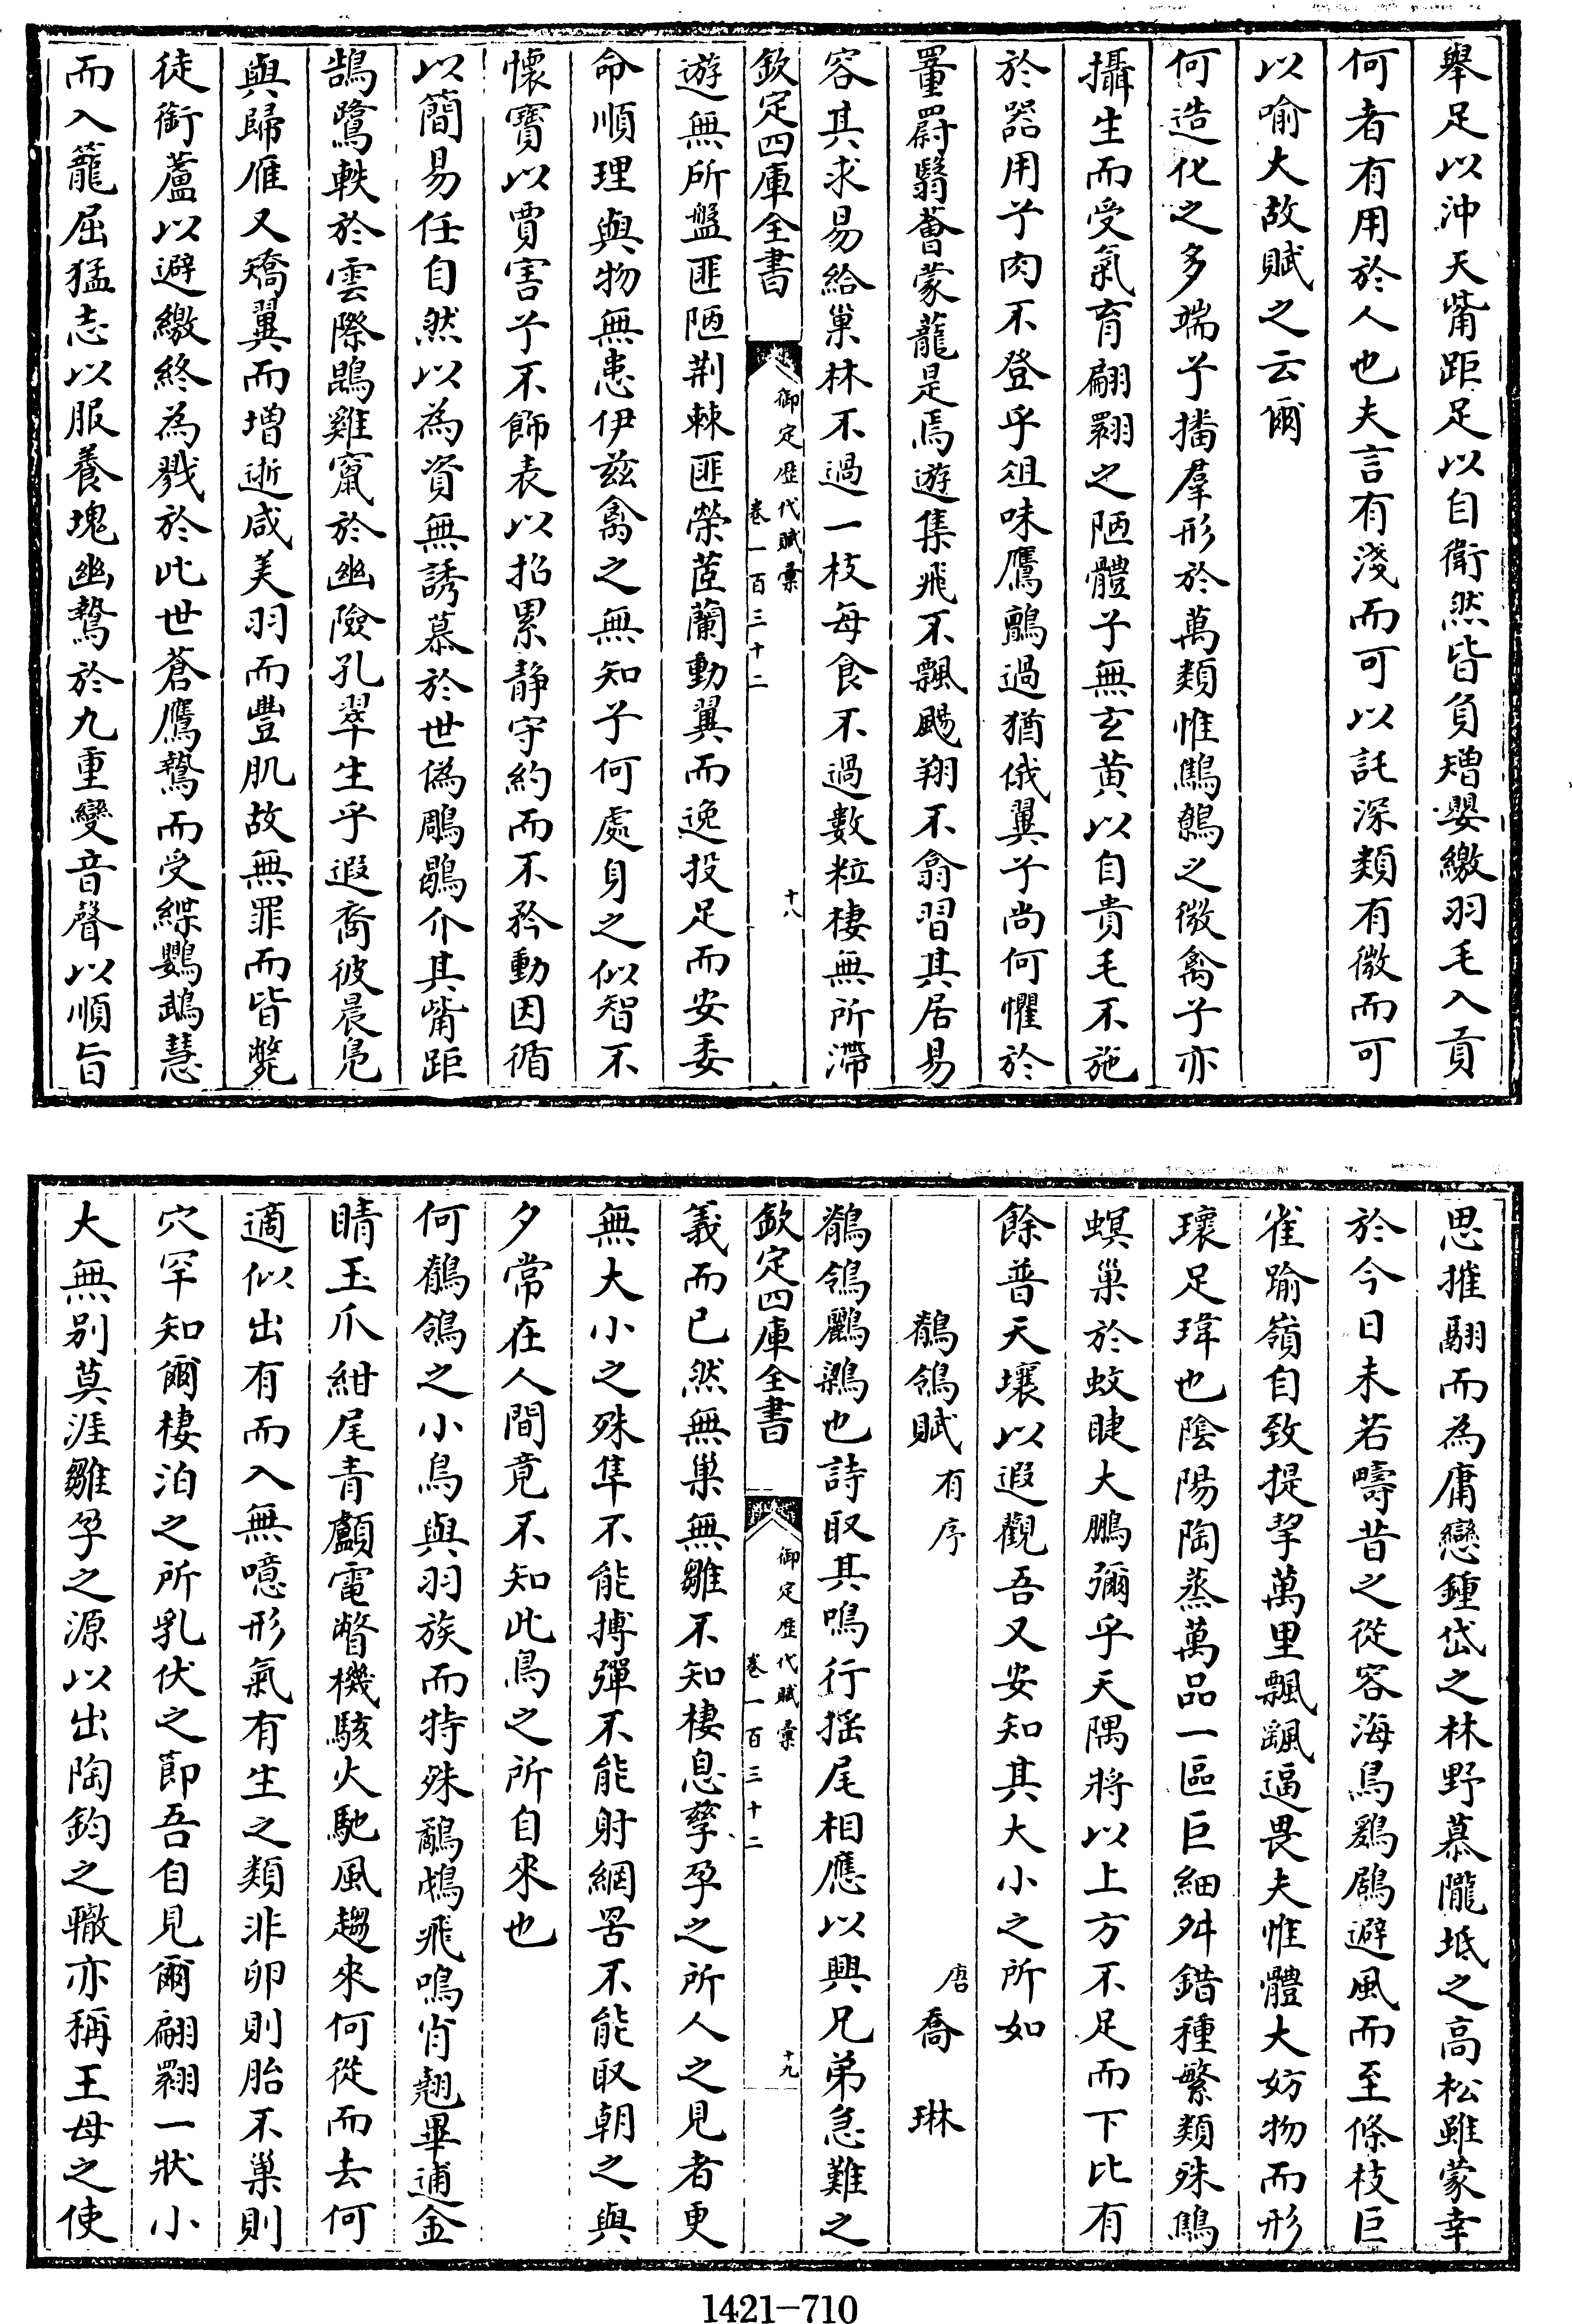 舉足以沖天觜距足以自衛然皆負矰嬰繳羽毛入貢
何者有用於人也夫言有淺而可以託深類有微而可
以喻大故賦之云爾
何造化之多端兮播羣形於萬類惟鷦鷯之微禽兮亦
攝生而受氣育翩翾之陋體兮無玄黃以自貴毛不施
於器用兮肉不登乎俎味鷹鸇過猶俄翼兮尚何懼於
罿罻翳薈蒙蘢是焉遊集飛不飄颺翔不翕習其居易
容其求易給巢林不過一枝每食不過數粒棲無所滯
欽定四庫全書
御定歷代賦彙
卷一百三十二
十八
遊無所盤匪陋荆棘匪榮茝蘭動翼而逸投足而安委
命順理與物無患伊茲禽之無知兮何處身之似智不
懷寶以賈害兮不飾表以招累靜守約而不矜動因循
以簡易任自然以為資無誘慕於世偽鵰鶡介其觜距
鵠鷺軼於雲際鵾雞竄於幽險孔翠生乎遐裔彼晨鳧
與歸雁又矯翼而增逝咸美羽而豐肌故無罪而皆斃
徒銜蘆以避繳終為戮於此世蒼鷹鷙而受緤鸚鵡慧
而入籠屈猛志以服養塊幽縶於九重變音聲以順旨
思摧翮而為庸戀鍾岱之林野慕隴坻之高松雖蒙幸
於今日未若疇昔之從容海鳥鶢鶋避風而至條枝巨
雀踰嶺自致提挈萬里飄颻逼畏夫惟體大妨物而形
瓌足瑋也陰陽陶蒸萬品一區巨細舛錯種繁類殊鷦
螟巢於蚊睫大鵬彌乎天隅將以上方不足而下比有
餘普天壤以遐觀吾又安知其大小之所如
鶺鴒賦 有序 唐 喬琳
鶺鴒鸝鸈也詩取其鳴行搖尾相應以興兄弟急難之
欽定四庫全書
御定歷代賦彙
卷一百三十二
十九
義而已然無巢無雛不知棲息孳孕之所人之見者更
無大小之殊隼不能搏彈不能射網罟不能取朝之與
夕常在人間竟不知此鳥之所自來也
何鶺鴒之小鳥與羽族而特殊鸸鴯飛鳴肖翹畢逋金
睛玉爪紺尾青顱電瞥機駭火馳風趨來何從而去何
適似出有而入無噫形氣有生之類非卵則胎不巢則
穴罕知爾棲泊之所乳伏之節吾自見爾翩翾一狀小
大無別莫涯雛孕之源以出陶鈞之轍亦稱王母之使
1421-710